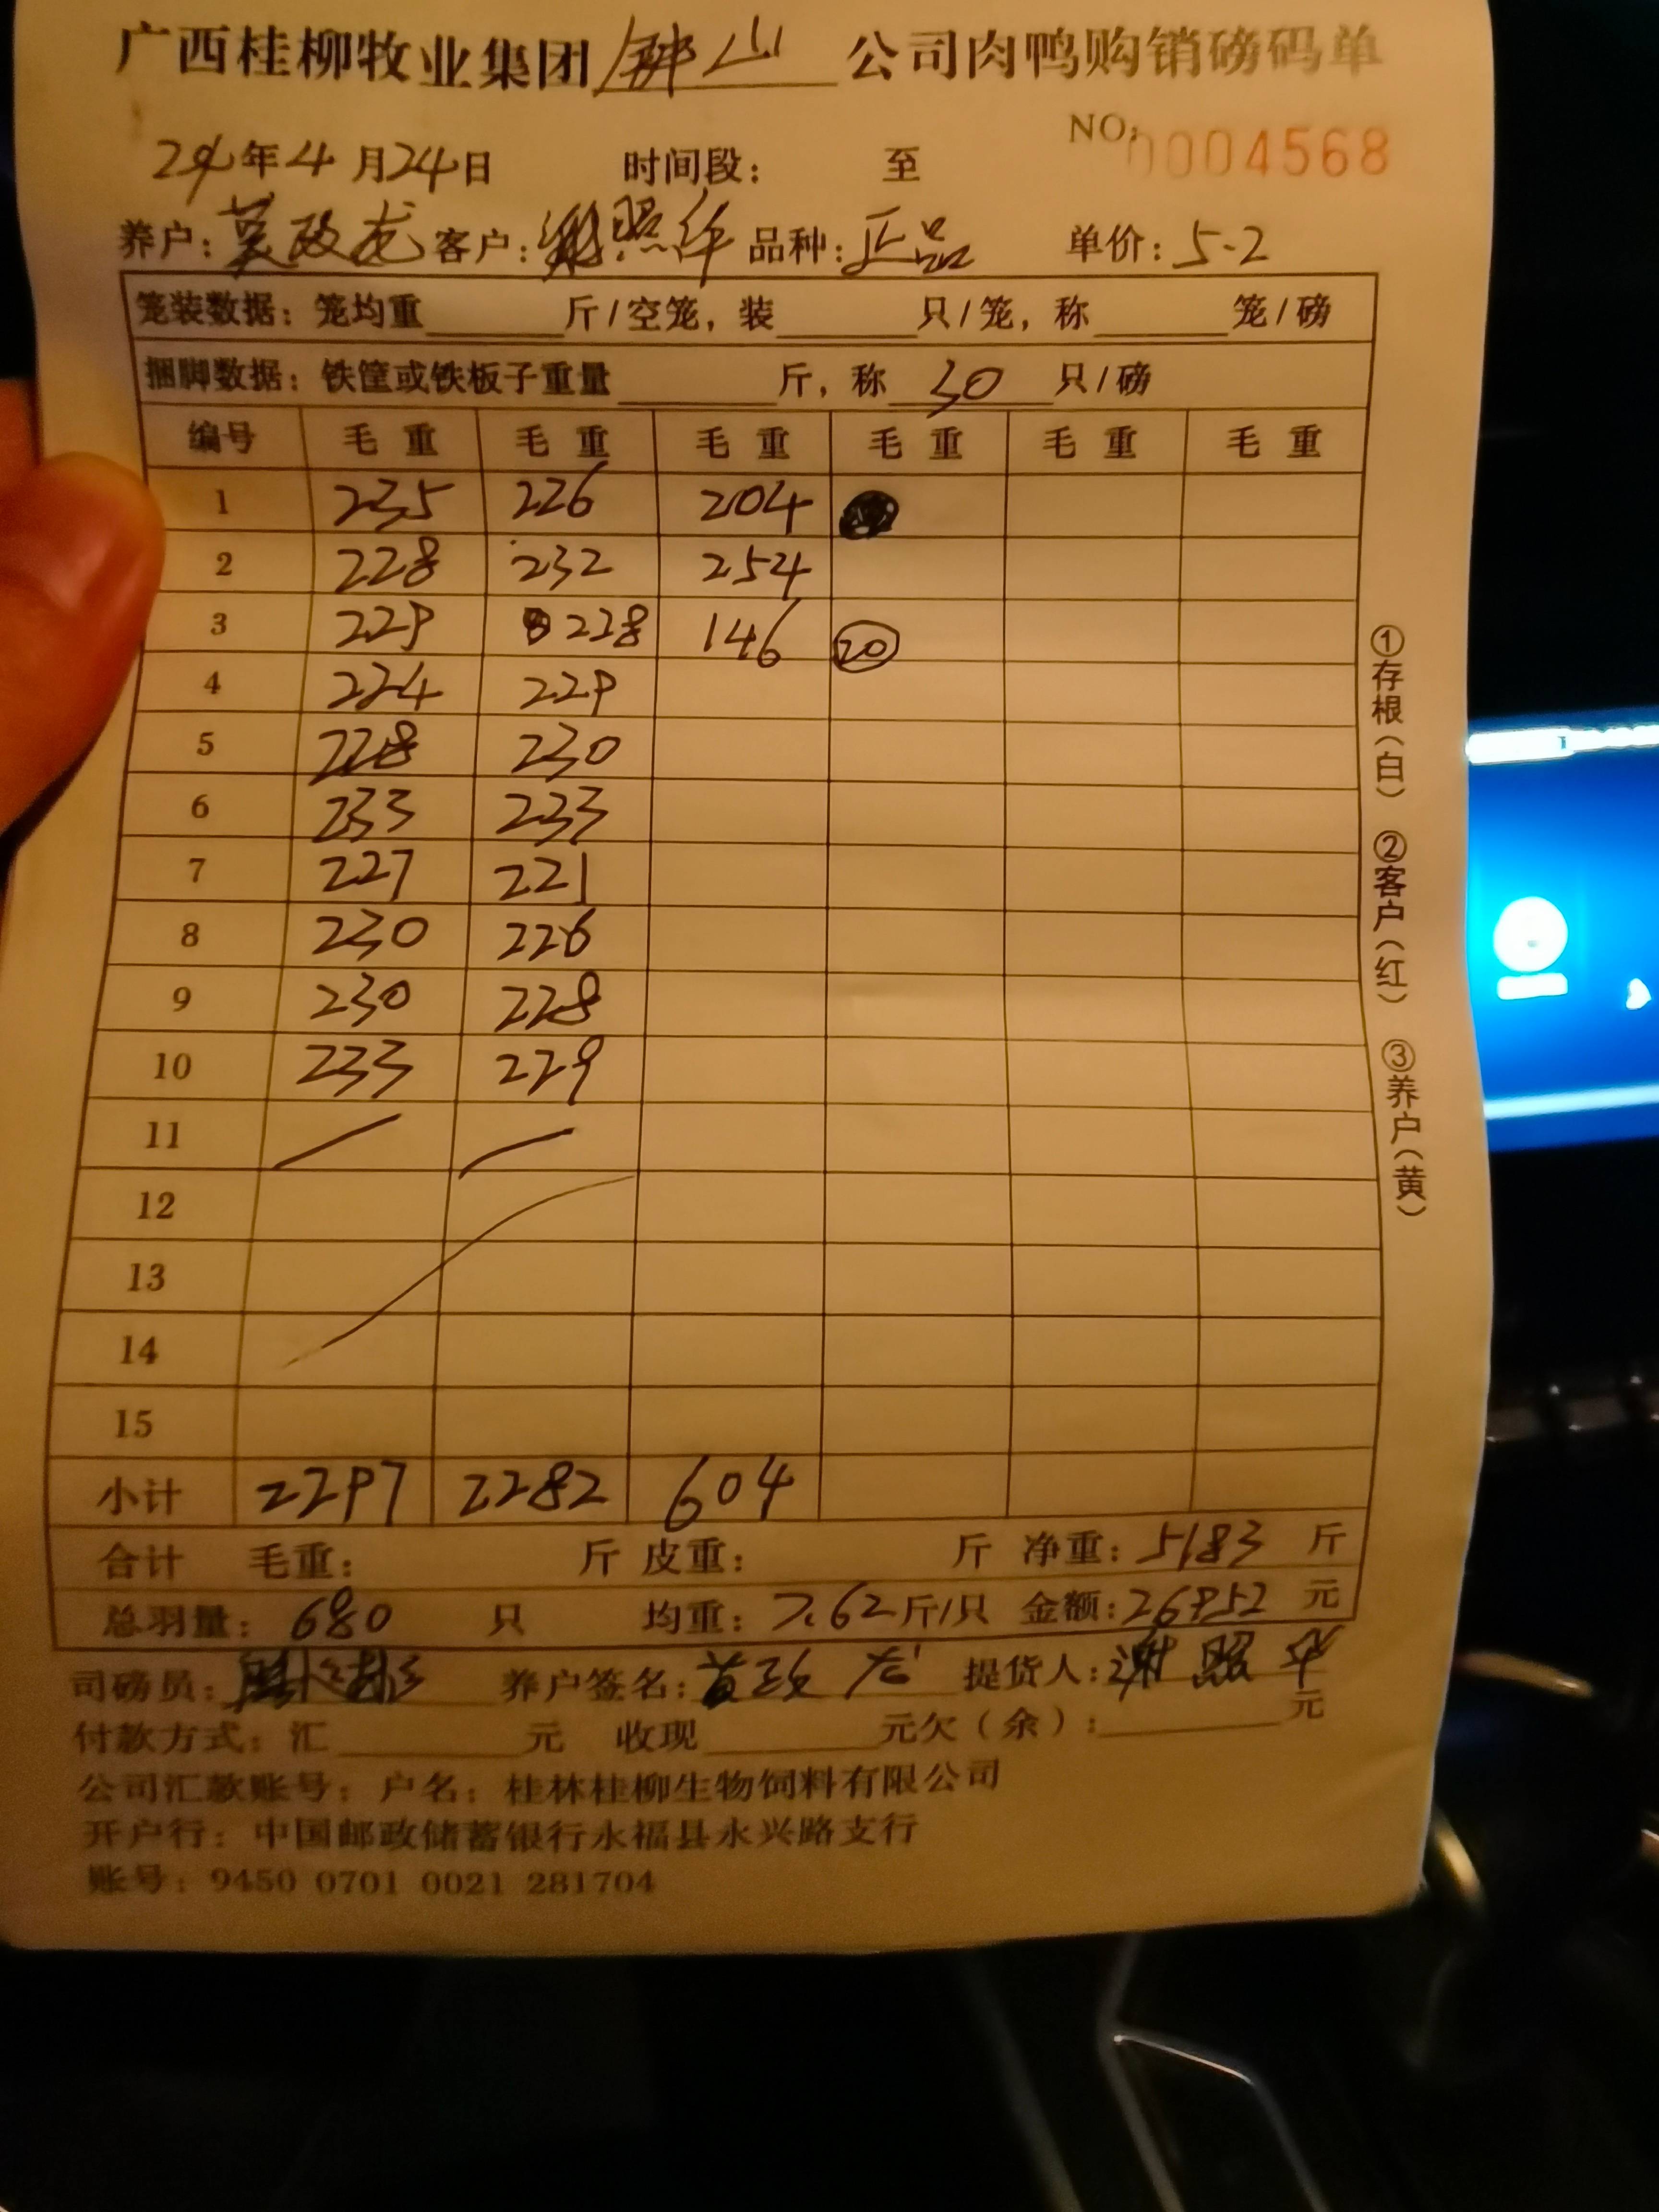 广西桂柳牧业集团 钟山 公司肉鸭购销磅码单
NO: 0004568
24年4月24日 时间段: 至
养户: 莫政龙 客户: 谢照华 品种: 正品 单价: 5.2
笼装数据: 笼均重 斤/空笼, 装 只/笼, 称 笼/磅
捆脚数据: 铁筐或铁板子重量 斤, 称 30 只/磅
编号 毛重 毛重 毛重 毛重 毛重 毛重
1 235 226 204
2 228 232 254
3 229 228 146 20
4 224 229
5 228 230
6 233 233
7 227 221
8 230 226
9 230 228
10 233 229
11
12
13
14
15
小计 2297 2282 604
合计 毛重: 斤 皮重: 斤 净重: 5183 斤
总羽量: 680 只 均重: 7.62 斤/只 金额: 26952 元
司磅员: 养户签名: 莫政龙 提货人: 谢照华
付款方式: 汇 元 收现 元欠(余): 元
公司汇款账号: 户名: 桂林桂柳生物饲料有限公司
开户行: 中国邮政储蓄银行永福县永兴路支行
账号: 9450 0701 0021 281704
①存根(白) ②客户(红) ③养户(黄)